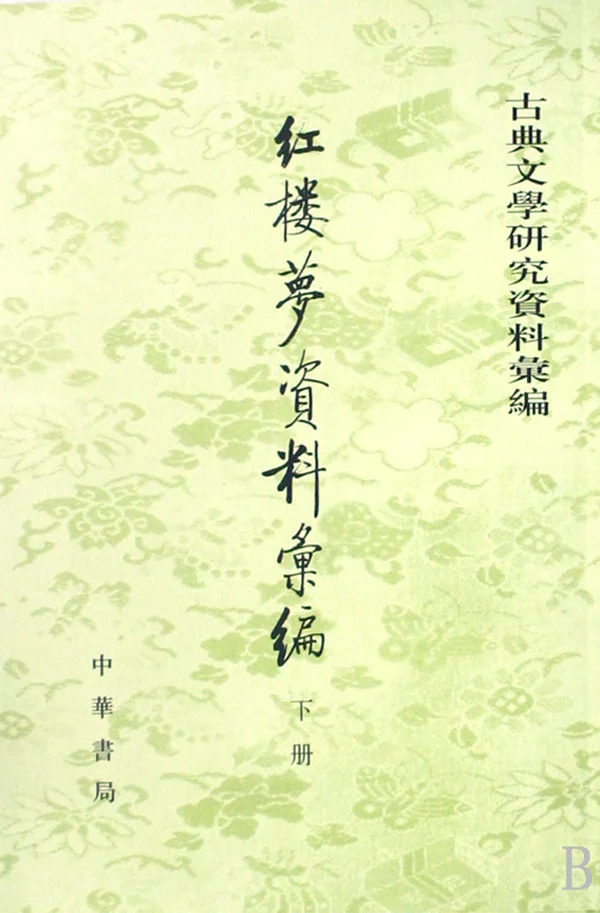 古典文學研究資料彙編
红楼夢資料彙编
下册
中華書局
B